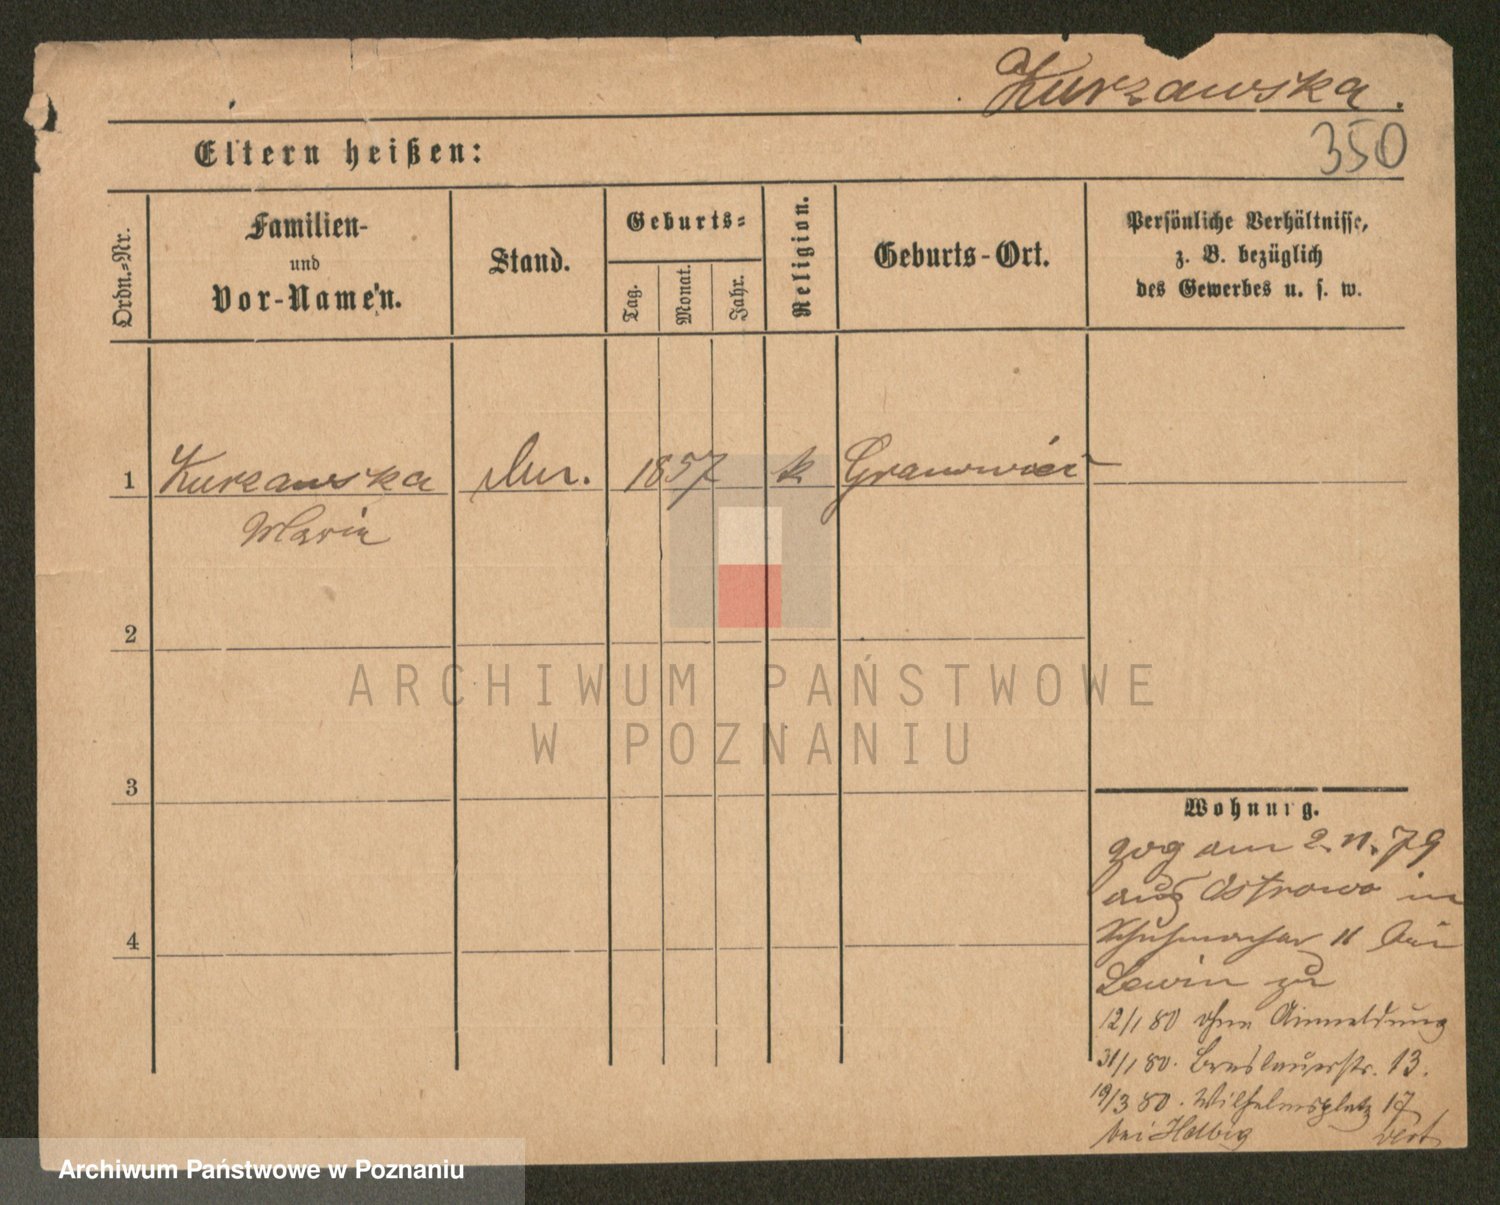 Kurzawska.
350
Eltern heißen:
Ordn.=Nr.
Familien-
und
Vor-Namen.
Stand.
Geburts=
Tag.
Monat.
Jahr.
Religion.
Geburts-Ort.
Persönliche Verhältnisse,
z. B. bezüglich
des Gewerbes u. s. w.
1 Kurzawska 1857 k
Maria
2
ARCHIWUM PAŃSTWOWE
W POZNANIU
3
Wohnung.
zog am 2. 11. 79
aus Ostrowo in
Schuhmacher 11 bei
Lewin zu
12/1 80 ohne
31/1 80. Breslauerstr. 13.
19/3 80. Wilhelmsplatz 17
bei Helbig
4
Archiwum Państwowe w Poznaniu